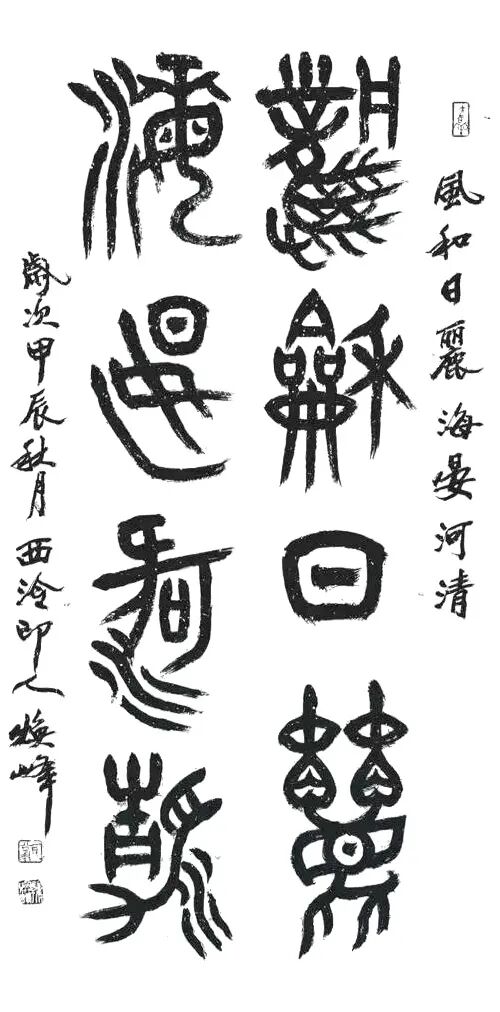 風和日麗海晏河清
龢日麗
海晏河清
歲次甲辰秋月西泠印人煥峰